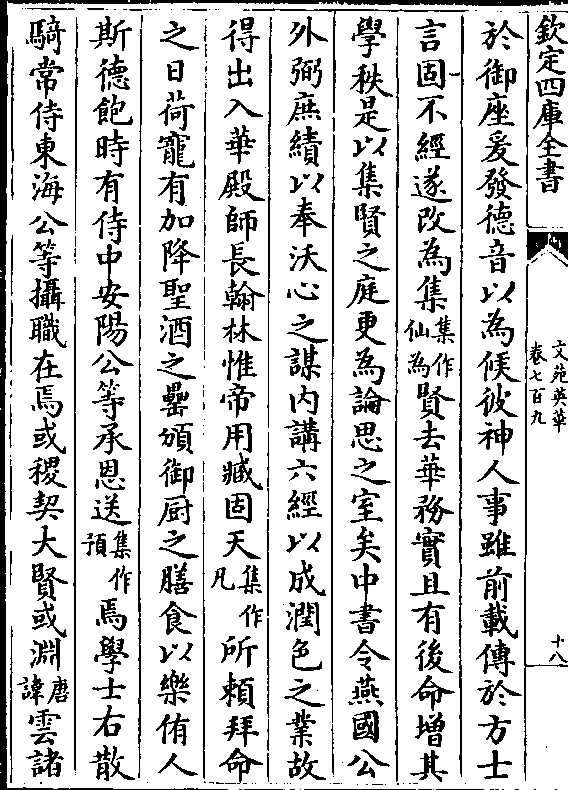 欽定四庫全書
文苑英華
卷七百九
十八
於御座爰發德音以為候彼神人事雖前載傳於方士
言固不經遂改為集集作仙為賢去華務實且有後命增其
學秩是以集賢之庭更為論思之室矣中書令燕國公
外弼庶績以奉沃心之謀内講六經以成潤色之業故
得出入華殿師長翰林惟帝用臧固天集作凡所賴拜命
之日荷寵有加降聖酒之罍頒御厨之膳食以樂侑人
斯德飽時有侍中安陽公等承恩送集作預焉學士右散
騎常侍東海公等攝職在焉或稷契大賢或淵唐諱雲諸